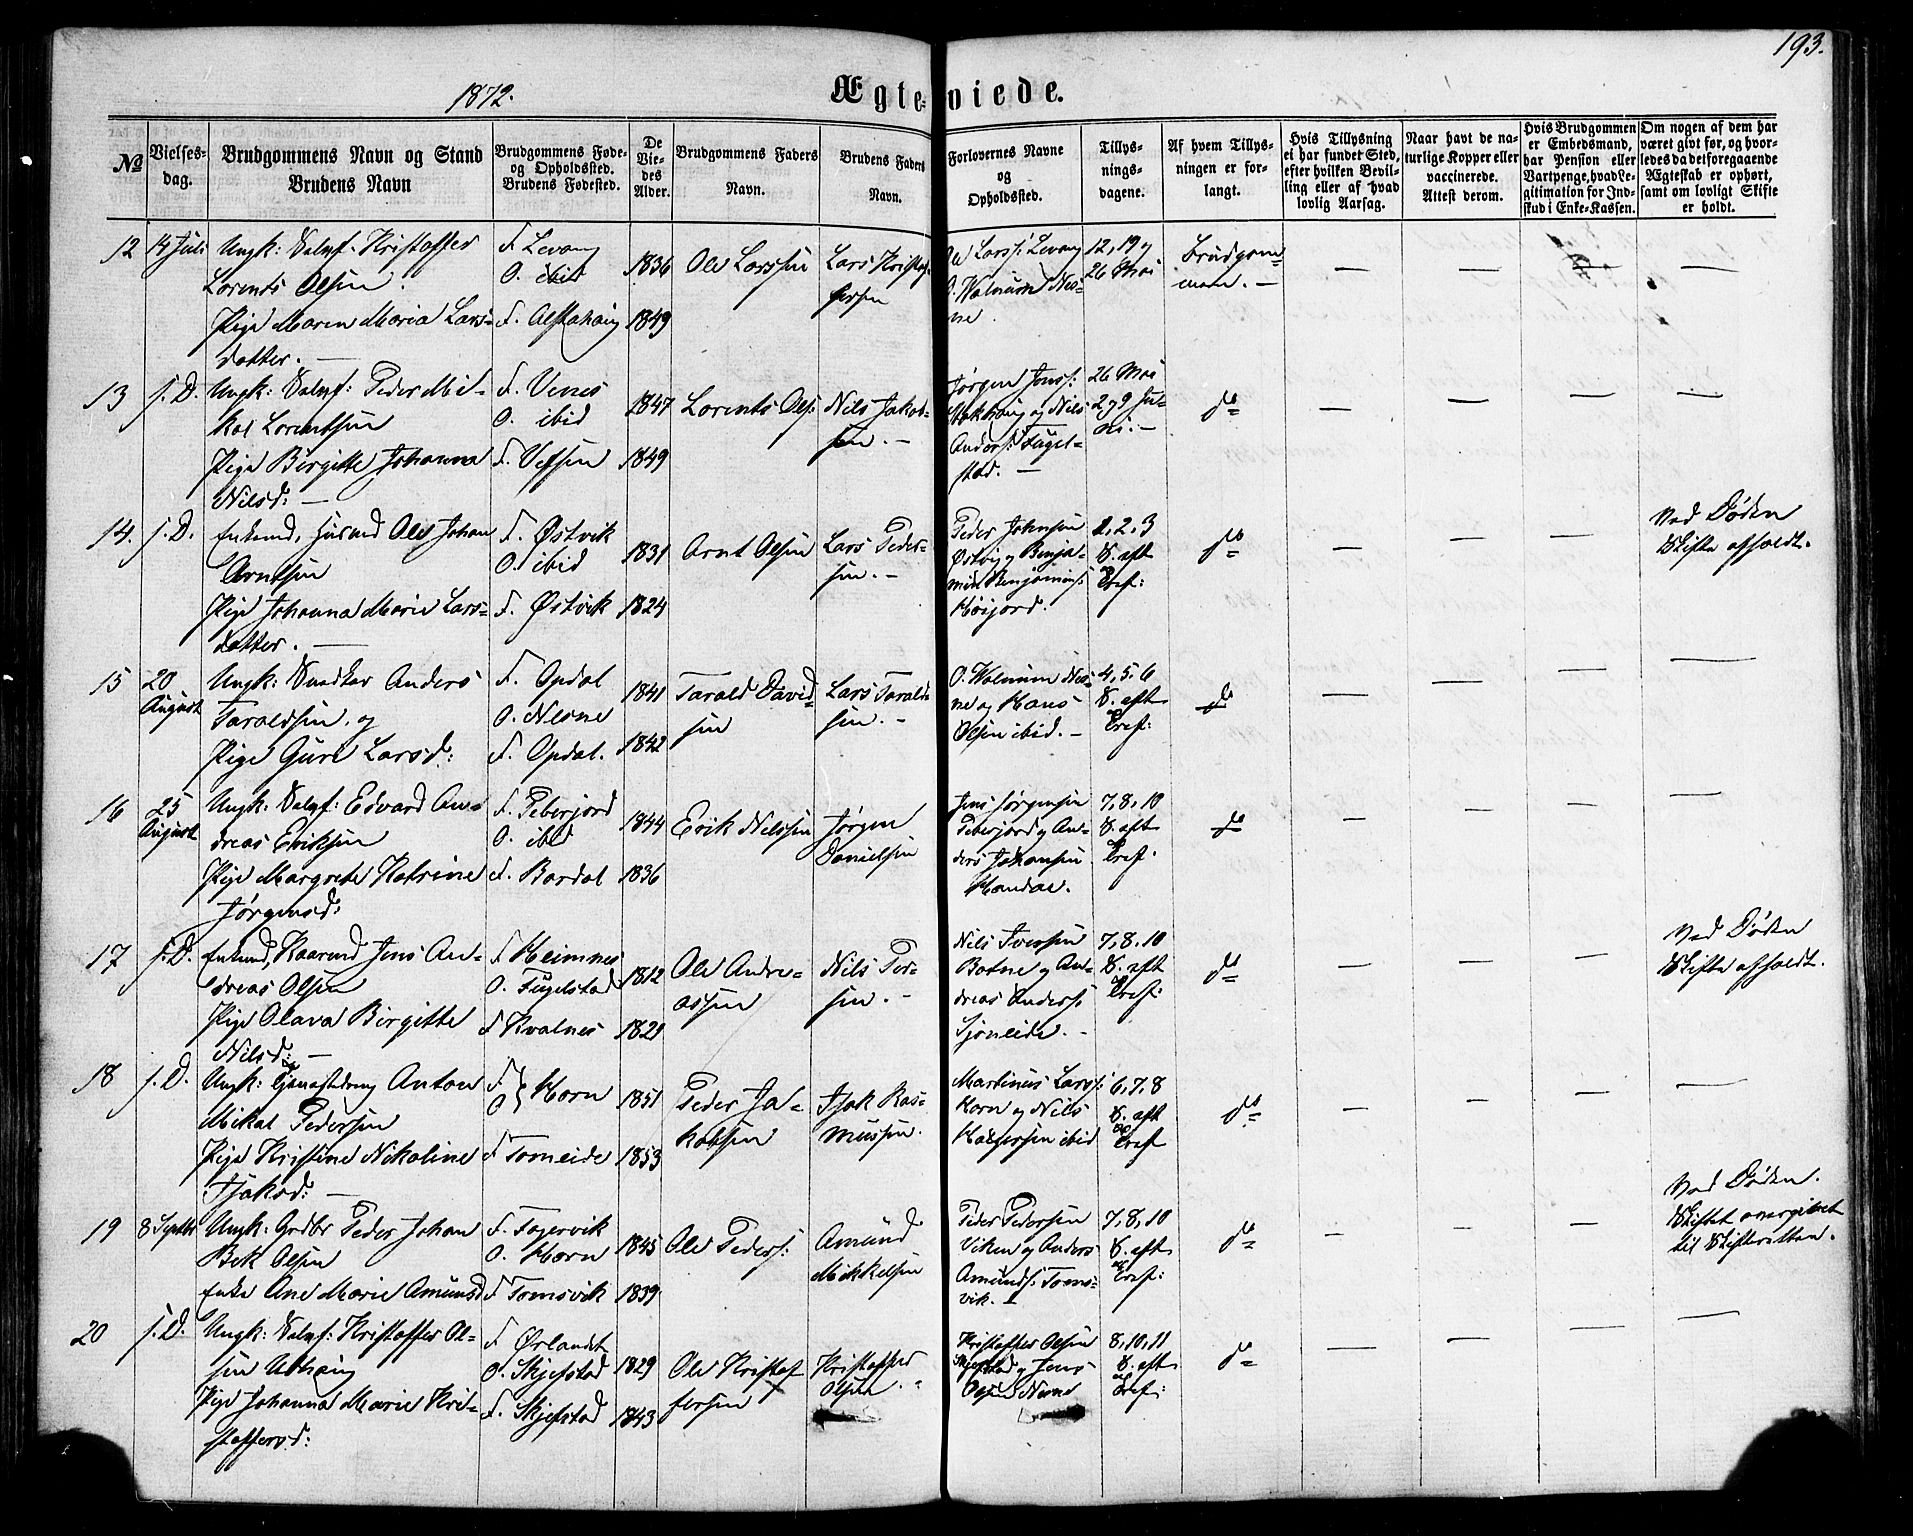 193.
1872.
Ægteviede.
№
Vielsesdag.
Brudgommens Navn og Stand
Brudens Navn
Brudgommens Føde-
og Opholdssted.
Brudens Fødested.
De
Vie-
des
Alder.
Brudgommens Faders
Navn.
Brudens Faders
Navn.
Forlovernes Navne
og
Opholdssted.
Tillys-
nings-
dagene.
Af hvem Tillys-
ningen er for-
langt.
Hvis Tillysning
ei har fundet Sted,
efter hvilken Bevil-
ling eller af hvad
lovlig Aarsag.
Naar havt de na-
turlige Kopper eller
vaccinerede.
Attest derom.
Hvis Brudgommen
er Embedsmand,
har Pension eller
Vartpenge, hvad Le-
gitimation for Ind-
skud i Enke-Kassen.
Om nogen af dem har
været givt før, og hvor-
ledes da det foregaaende
Ægteskab er ophørt,
samt om lovligt Skifte
er holdt.
12 14 Juli Ungk: Selvf. Kristoffer
Lorents Olsen.
Pige Maren Maria Lars-
datter. —
F. Levang
O. ibid
F. Alstahaug
1836
1849
Ole Larssen
Lars Kristof-
fersen
Ol Lars: Levang
O. Walnum Nes-
ne.
12, 19 og
26 Mai
Brudgom-
men. —
13 s. D. Ungk: Selvf: Peder Mi-
kal Lorentsen
Pige Birgitte Johanna
Nilsd: —
F. Venes
O. ibid
F. Vefsen
1847
1849
Lorents Ols:
Nils Jakob-
sen. —
Jørgen Jons:
og Nils
Anders: Fugel-
stad. —
26 Mai
2 og 9 Ju-
ni. —
do
14. s. D. Enkemd, Husmd Ole Johan
Arntsen
Pige Johanna Marie Lars-
datter. —
F. Østvik
O. ibid
F. Østvik
1831
1824
Arnt Olsen
Lars Peder-
sen. —
Peder Johnsen
Østvig og Benja-
min Benjamins:
Høijord.
1, 2, 3
S. eft
Tref:
do
Ved Døden
Skifte afholdt.
15 20
August
Ungk: Snedker Anders
Taraldsen, og
Pige Guri Larsd:
F. Opdal
O. Nesne
F. Opdal.
1841
1842
Tarald David-
sen
Lars Tarald-
sen. —
O. Walnum Nes-
ne og Hans
Olsen ibid. —
4, 5, 6
S. eft
Tref:
do
16 25
August
Ungk: Selvf: Edvard An-
dreas Eriksen
Pige Margrete Katrine
Jørgensd:
F. Feberjord
O. ibid
F. Bardal
1844
1836
Erik Nilssen
Jørgen
Danielsen
Jens Jørgensen
Feberjord og An-
ders Johansen
7, 8, 10
S. eft
Tref.
do
17 s. D. Enkemd, Kaarmd Jens An-
dreas Olsen
Pige Olava Birgitte
Nilsd: —
F. Heimnes
O. Fugelstad
F Kvalnes
1812
1821
Ole Andre-
assen
Nils Per-
sen. —
Nils Iverssen
Botne og An-
dreas Anders:
Sjoneide. —
7, 8, 10
S. eft
Tref:
do
Ved Døden
Skifte afholdt.
18 s. D. Ungk: Tjenestedreng Anton
Mikal Pedersen
Pige Kristine Nikoline
Isaksd: —
F.
O } Horn
F Torneide
1851
1853
Peder Ja-
kobsen
Isak Ras-
mussen.
Martinus Lars:
Horn og Nils
Holgersen ibid
6, 7, 8
S. eft
Tref
do
19 8 Septbr Ungk: Grdbr Peder Johan
Bek Olsen
Enke Ane Marie Amundsd
F. Fagervik
O. Horn
F Tomsvik
1845
1839
Ole Peders:
Amund
Mikkelsen
Peder Pedersen
Viken og Anders
Amunds: Toms-
vik.
7, 8, 10
S. eft
Tref:
do
Ved Døden.
Skiftet overgivet
til Skifteretten.
20 s. D. Ungk: Selvf: Kristoffer Ol-
sen Uthaug
Pige Johanna Marie Kri-
stoffersd:
F Ørlandt
O. Skjefstad
F. Skjefstad
1829
1843
Ole Kristof
fersen
Kristoffer
Olsen. "
Kristoffer Olsen
Skjefstad og Jens
Olsen
8, 10, 11
S. eft
Tref:
do